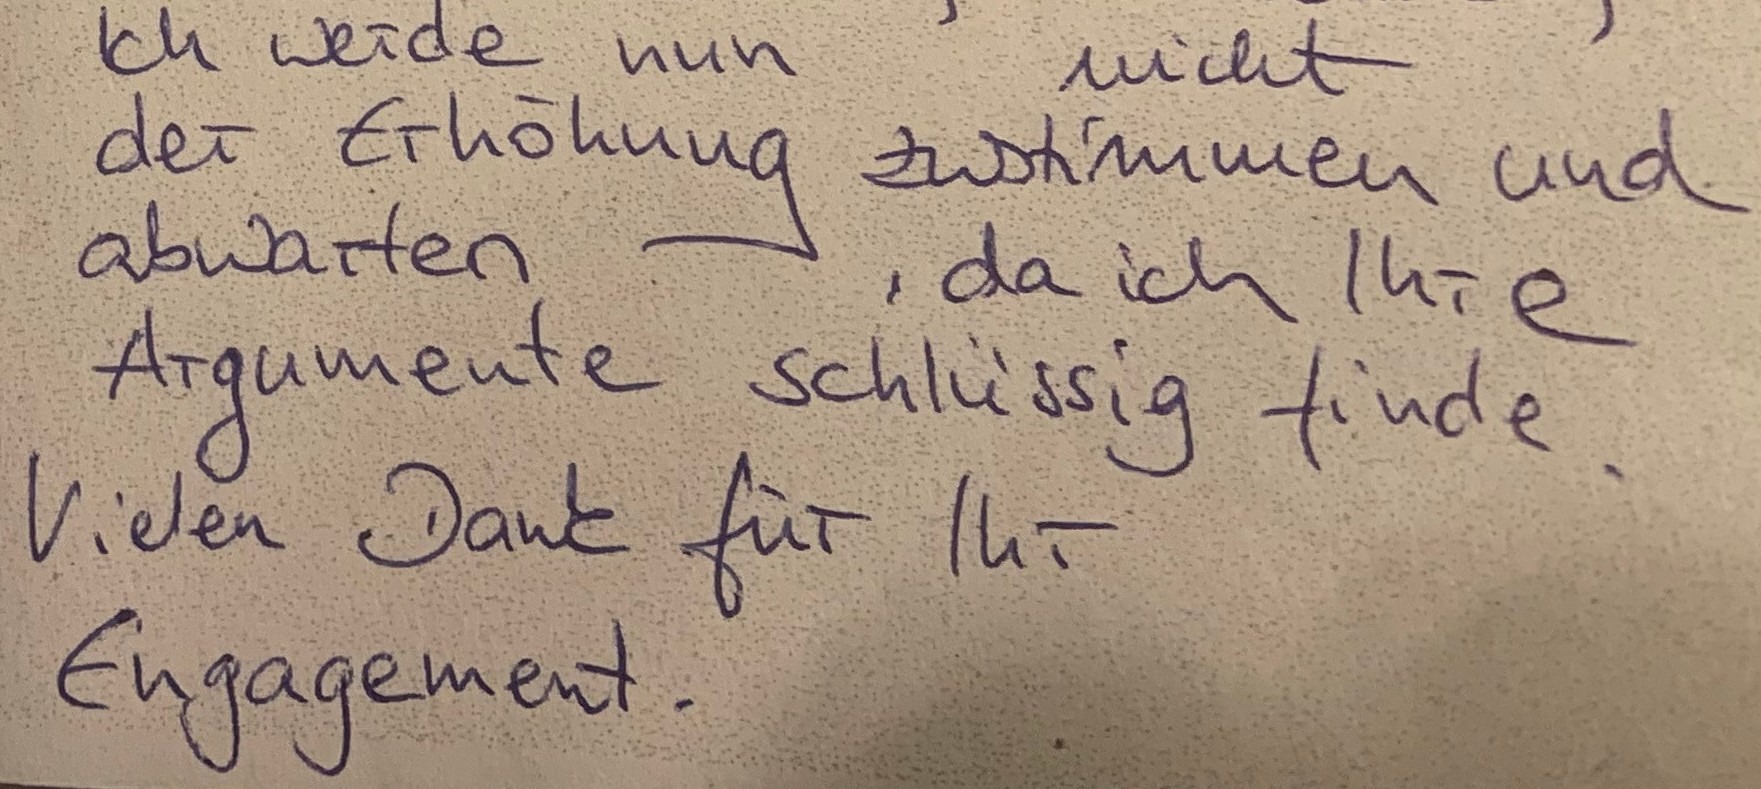 Ich werde nun nicht
der Erhöhung zustimmen und
abwarten, da ich Ihre
Argumente schlüssig finde.
Vielen Dank für Ihr
Engagement.